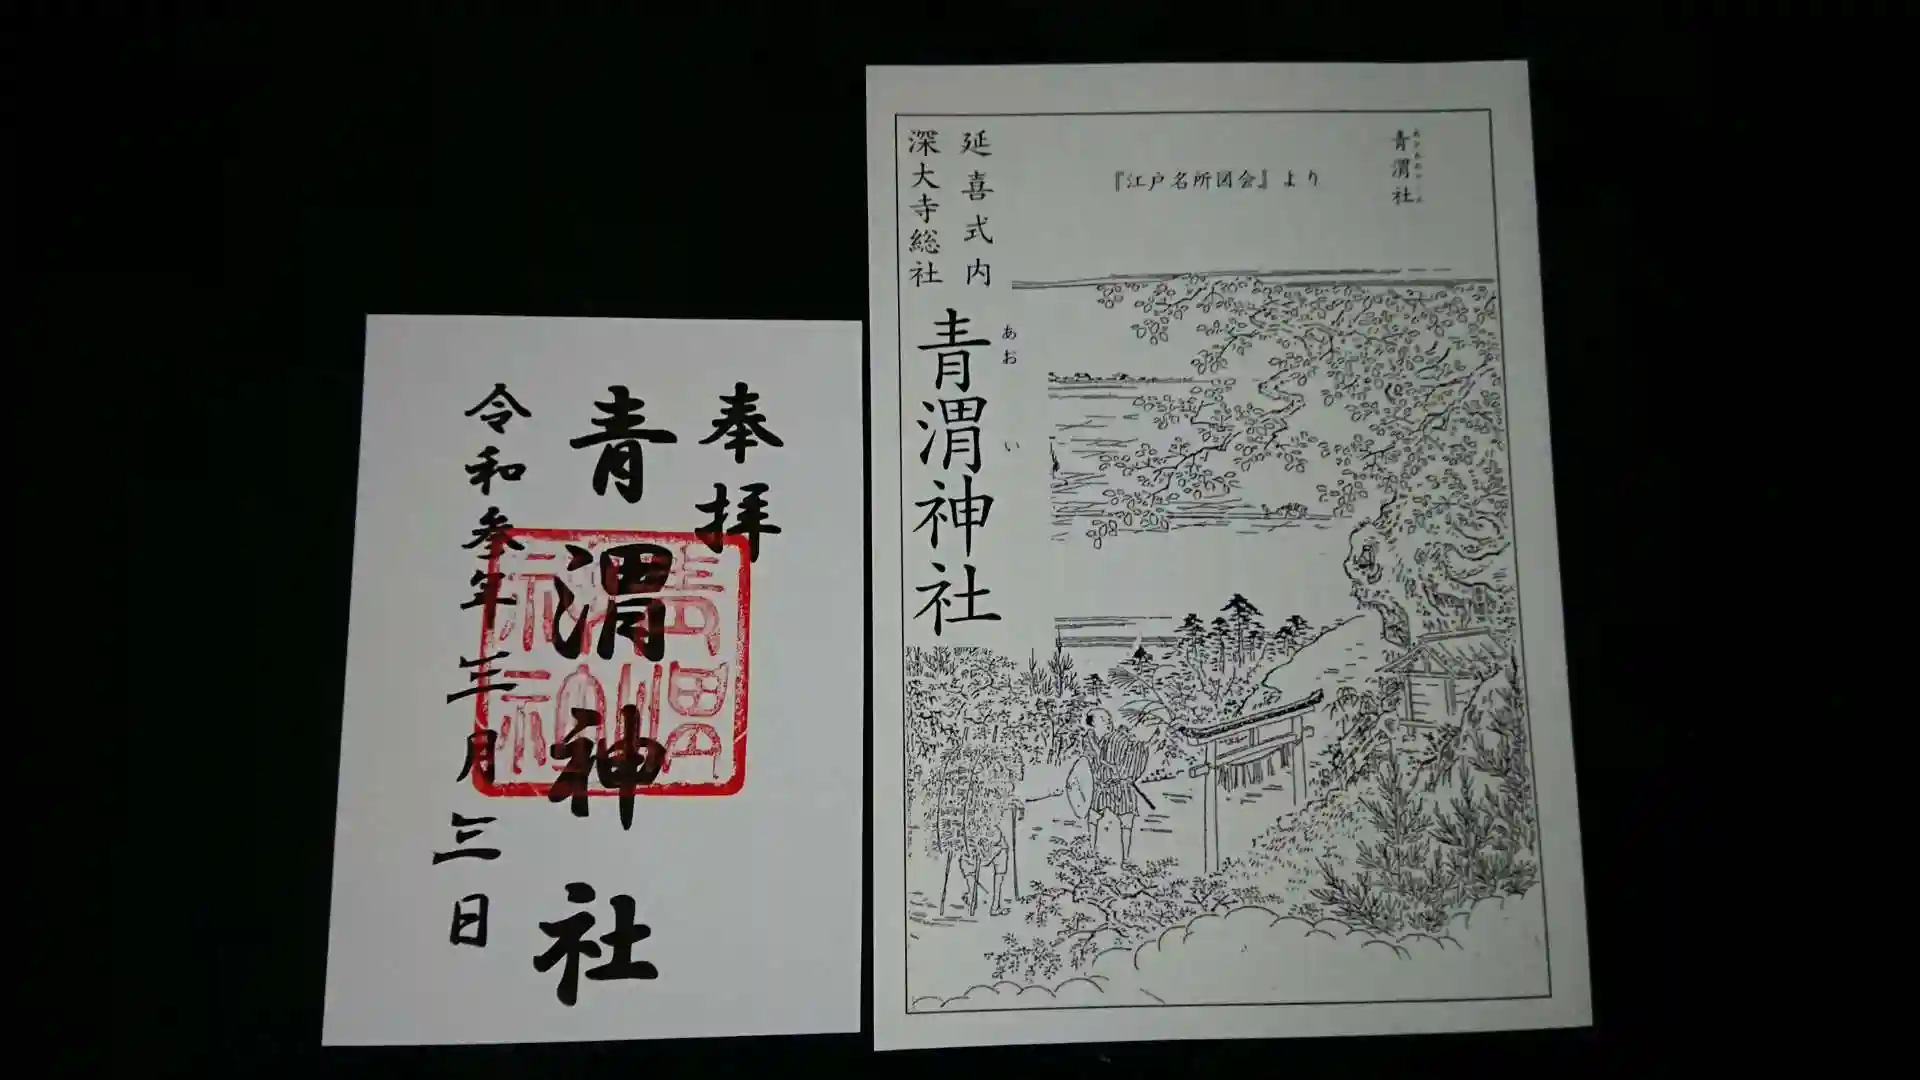 奉拝
青渭神社
令和参年三月三日
青渭神社
『江戸名所図会』より
延喜式内
深大寺総社
青渭神社
あおい